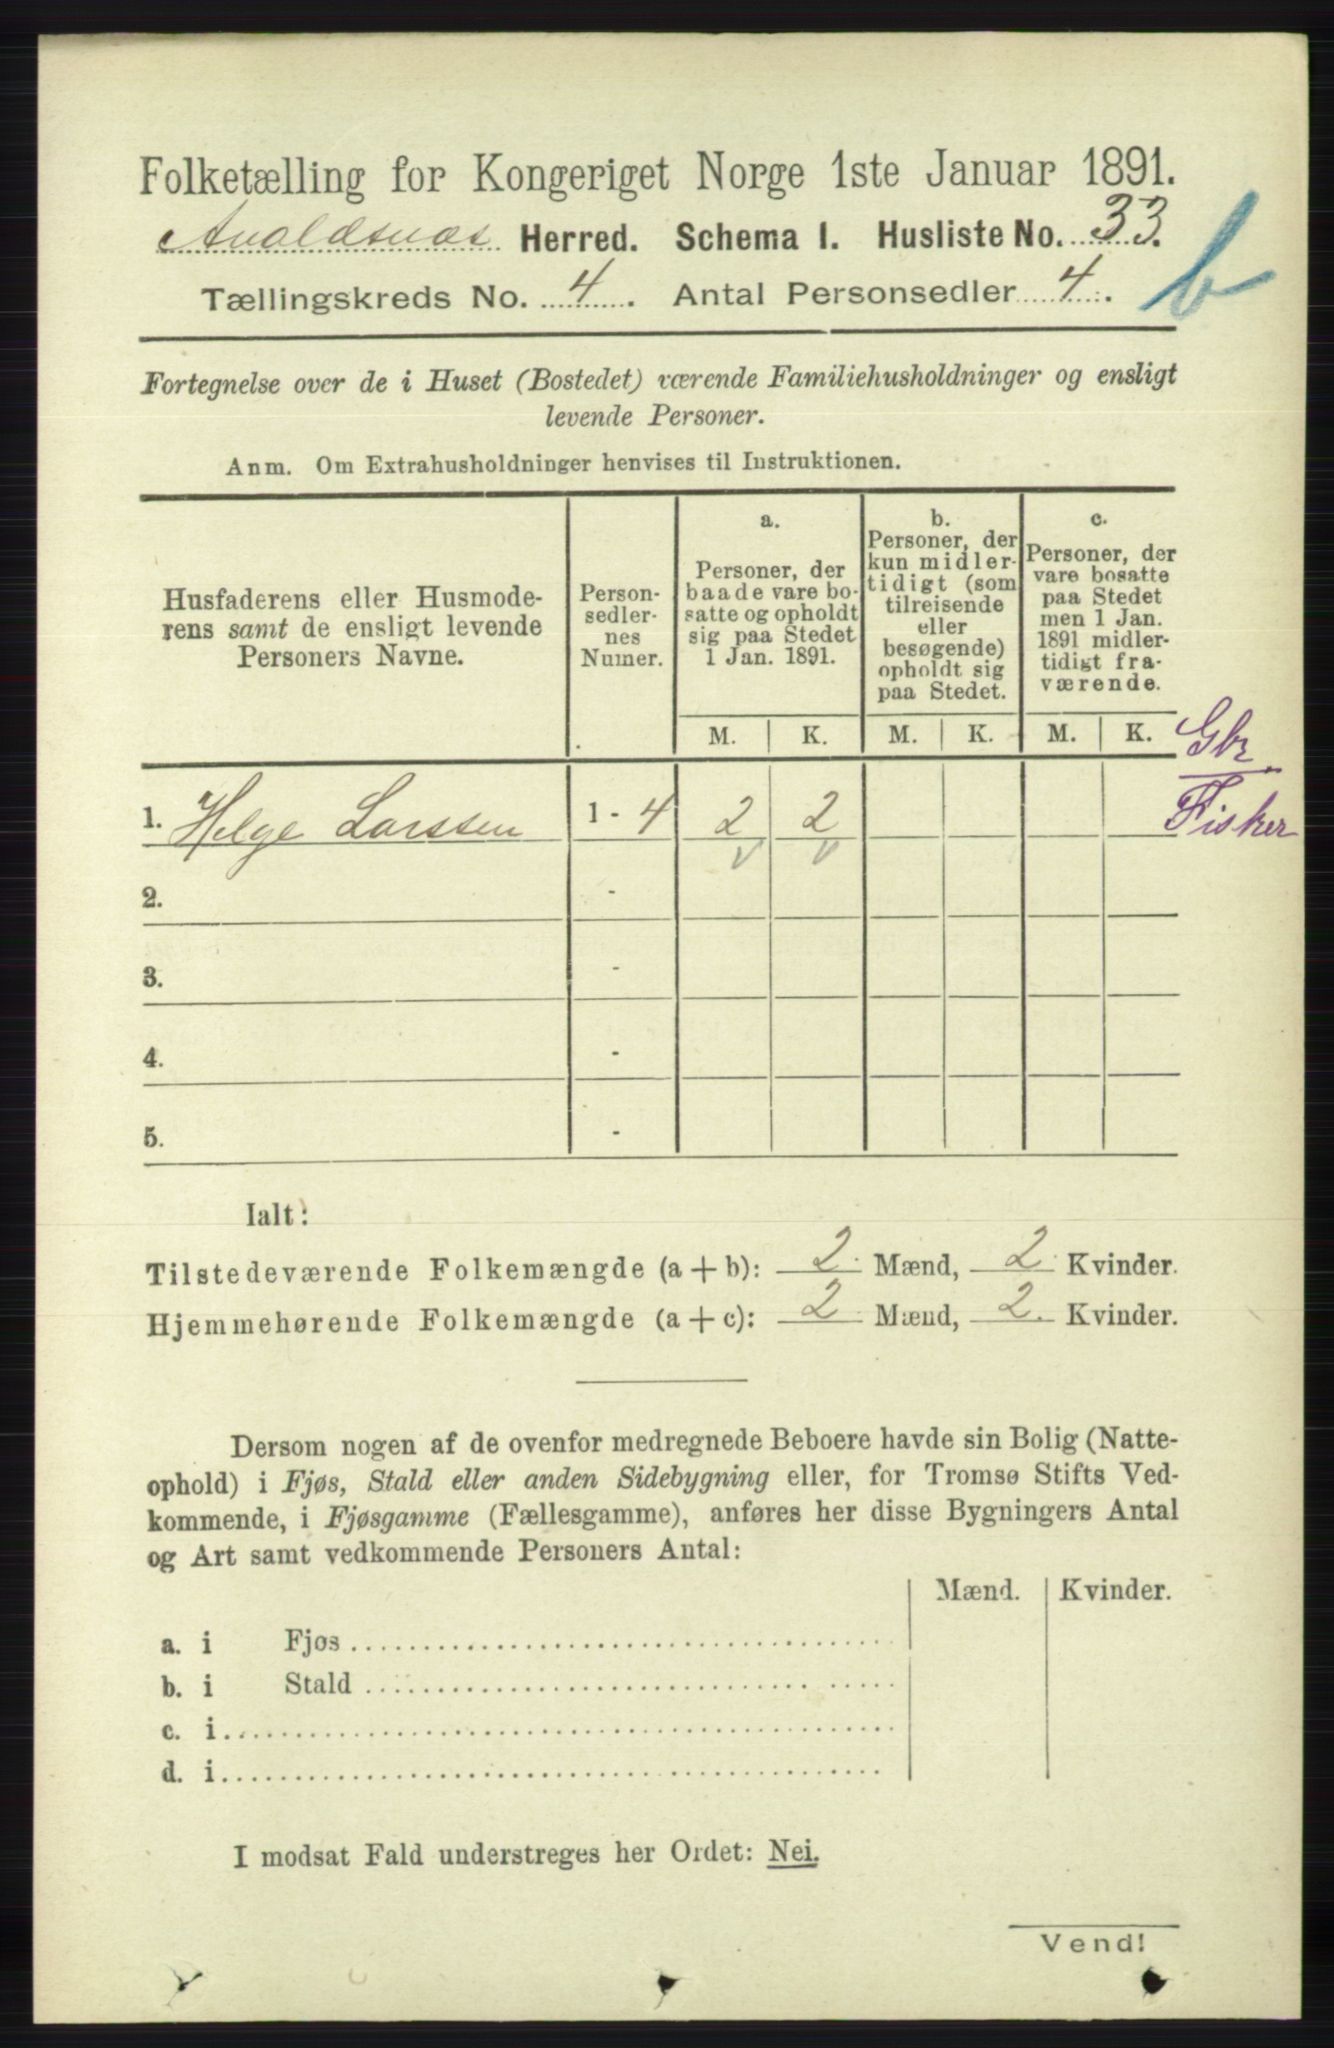 Folketælling for Kongeriget Norge 1ste Januar 1891.
Avaldsnæs Herred. Schema I. Husliste No. 33.
b
Tællingskreds No. 4. Antal Personsedler 4.
Fortegnelse over de i Huset (Bostedet) værende Familiehusholdninger og ensligt
levende Personer.
Anm. Om Extrahusholdninger henvises til Instruktionen.
Husfaderens eller Husmode-
rens samt de ensligt levende
Personers Navne.
Person-
sedler-
nes
Numer.
a.
Personer, der
baade vare bo-
satte og opholdt
sig paa Stedet
1 Jan. 1891.
b.
Personer, der
kun midler-
tidigt (som
tilreisende
eller
besøgende)
opholdt sig
paa Stedet.
c.
Personer, der
vare bosatte
paa Stedet
men 1 Jan.
1891 midler-
tidigt fra-
værende.
M. K. M. K. M. K.
Gbr.
Fisker
1. Helge Larssen 1 - 4 2 2
2. -
3. -
4. -
5. -
Ialt:
Tilstedeværende Folkemængde (a + b): 2 Mænd, 2 Kvinder.
Hjemmehørende Folkemængde (a + c): 2 Mænd, 2. Kvinder.
Dersom nogen af de ovenfor medregnede Beboere havde sin Bolig (Natte-
ophold) i Fjøs, Stald eller anden Sidebygning eller, for Tromsø Stifts Ved-
kommende, i Fjøsgamme (Fællesgamme), anføres her disse Bygningers Antal
og Art samt vedkommende Personers Antal:
Mænd. Kvinder.
a. i Fjøs
b. i Stald
c. i
d. i
I modsat Fald understreges her Ordet: Nei.
Vend!